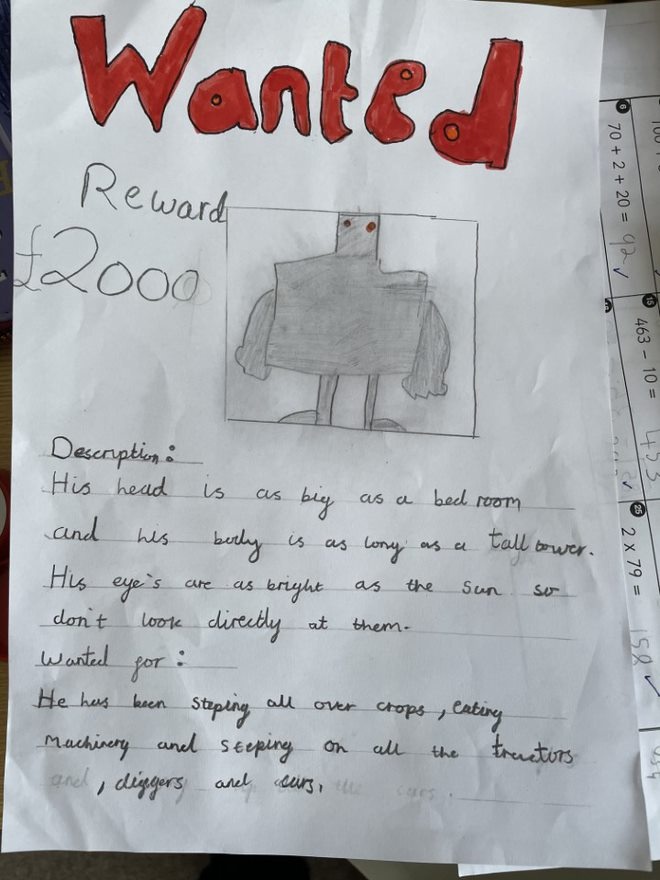 Wanted
Reward
£2000
Description:
His head is as big as a bed room
and his body is as long as a tall tower.
His eye's are as bright as the sun so
don't look directly at them.
Wanted for:
He has been steping all over crops, eating
machinery and steeping on all the tractors
, diggers and cars.
6
70 + 2 + 20 = 92
15
463 - 10 = 453
25
2 x 79 = 158